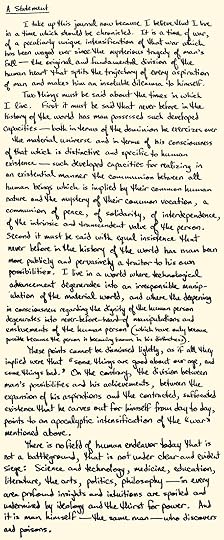 A Statement
I take up this journal now because I believe that I live
in a time which should be chronicled. It is a time of war,
of a peculiarly unique intensification of that war which
has been waged ever since the mysterious tragedy of man's
fall — the original and fundamental division of the
human heart that splits the trajectory of every aspiration
of man and makes him an insoluble dilemma to himself.
Two things must be said about the times in which
I live. First it must be said that never before in the
history of the world has man possessed such developed
capacities — both in terms of the dominion he exercises over
the material universe and in terms of his consciousness
of that which is distinctive and specific to human
existence — such developed capacities for realizing in
an existential manner the communion between all
human beings which is implied by their common human
nature and the mystery of their common vocation, a
communion of peace, of solidarity, of interdependence,
of the intrinsic and transcendent value of the person.
Second it must be said with equal insistence that
never before in the history of the world has man been
more publicly and pervasively a traitor to his own
possibilities. I live in a world where technological
advancement degenerates into an irresponsible manip-
ulation of the material world, and where the deepening
in consciousness regarding the dignity of the human person
degenerates into never-before-heard-of manipulations and
enslavements of the human person (which have only become
possible because the person is becoming known in his distinctness).
These points cannot be dismissed lightly, as if all they
implied were that "some things are good about our age, and
some things bad." On the contrary, the division between
man's possibilities and his achievements, between the
expansion of his aspirations and the contracted, suffocated
existence that he carves out for himself from day to day,
points to an apocalyptic intensification of the war
mentioned above.
There is no field of human endeavor today that is
not a battleground, that is not under clear and evident
siege: Science and technology, medicine, education,
literature, the arts, politics, philosophy — in every
area profound insights and intuitions are spoiled and
undermined by ideology and the thirst for power. And
it is man himself — the same man — who discovers
and poisons.